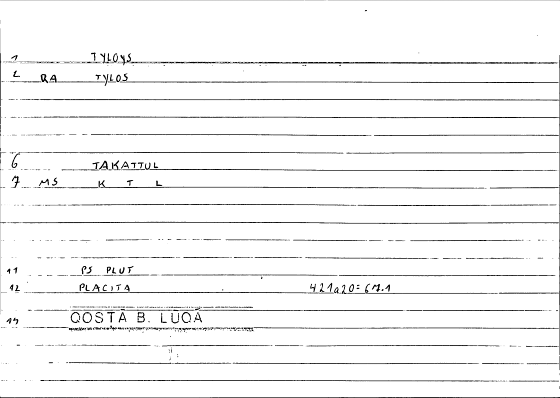 1 TYLOYS
2 RA TYLOS
6 TAKATTUL
7 MS K T L
11 PS PLUT
12 PLACITA 421a20=
14 QOSTĀ B. LŪQĀ